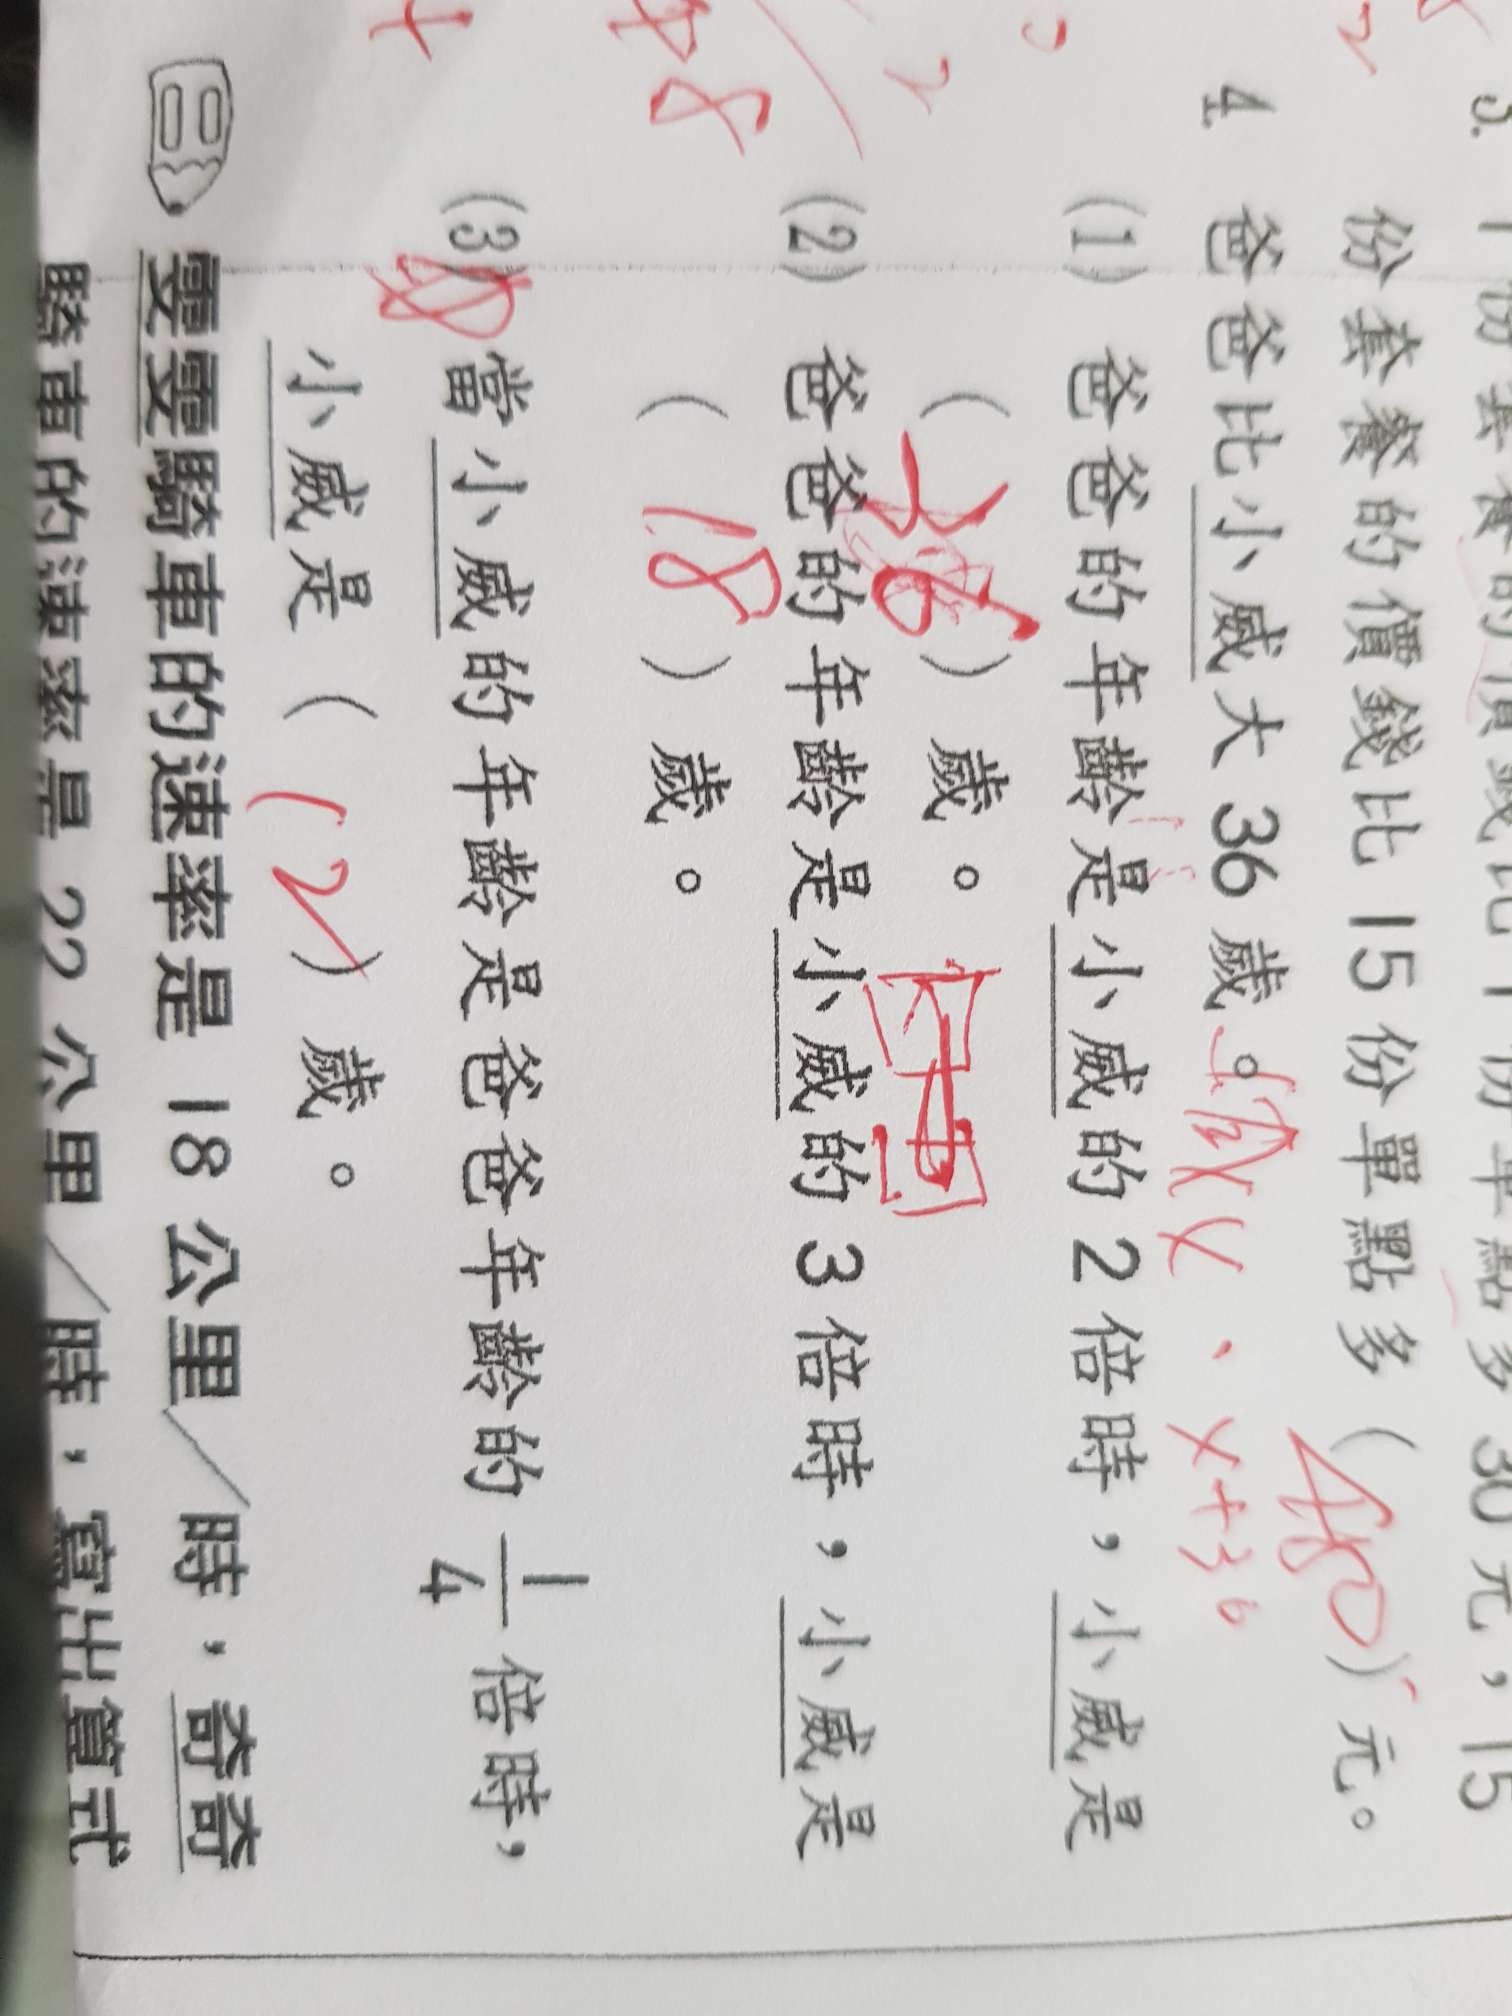 份套餐的價錢比 1 份單點多 30 元，15
份套餐的價錢比 15 份單點多（480）元。
4. 爸爸比小威大 36 歲。 x、x+36
(1) 爸爸的年齡是小威的 2 倍時，小威是
（36）歲。
(2) 爸爸的年齡是小威的 3 倍時，小威是
（18）歲。
(3) 當小威的年齡是爸爸年齡的 1/4 倍時，
小威是（12）歲。
雯雯騎車的速率是 18 公里／時，奇奇
騎車的速率是 22 公里／時，寫出算式